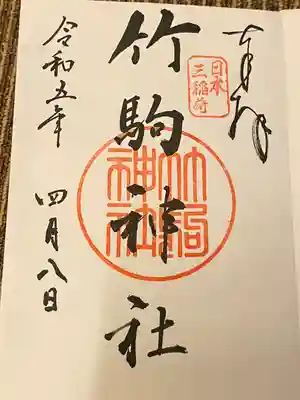 奉拝
日本
三稲荷
竹駒神社
竹駒
神社
令和五年
四月八日